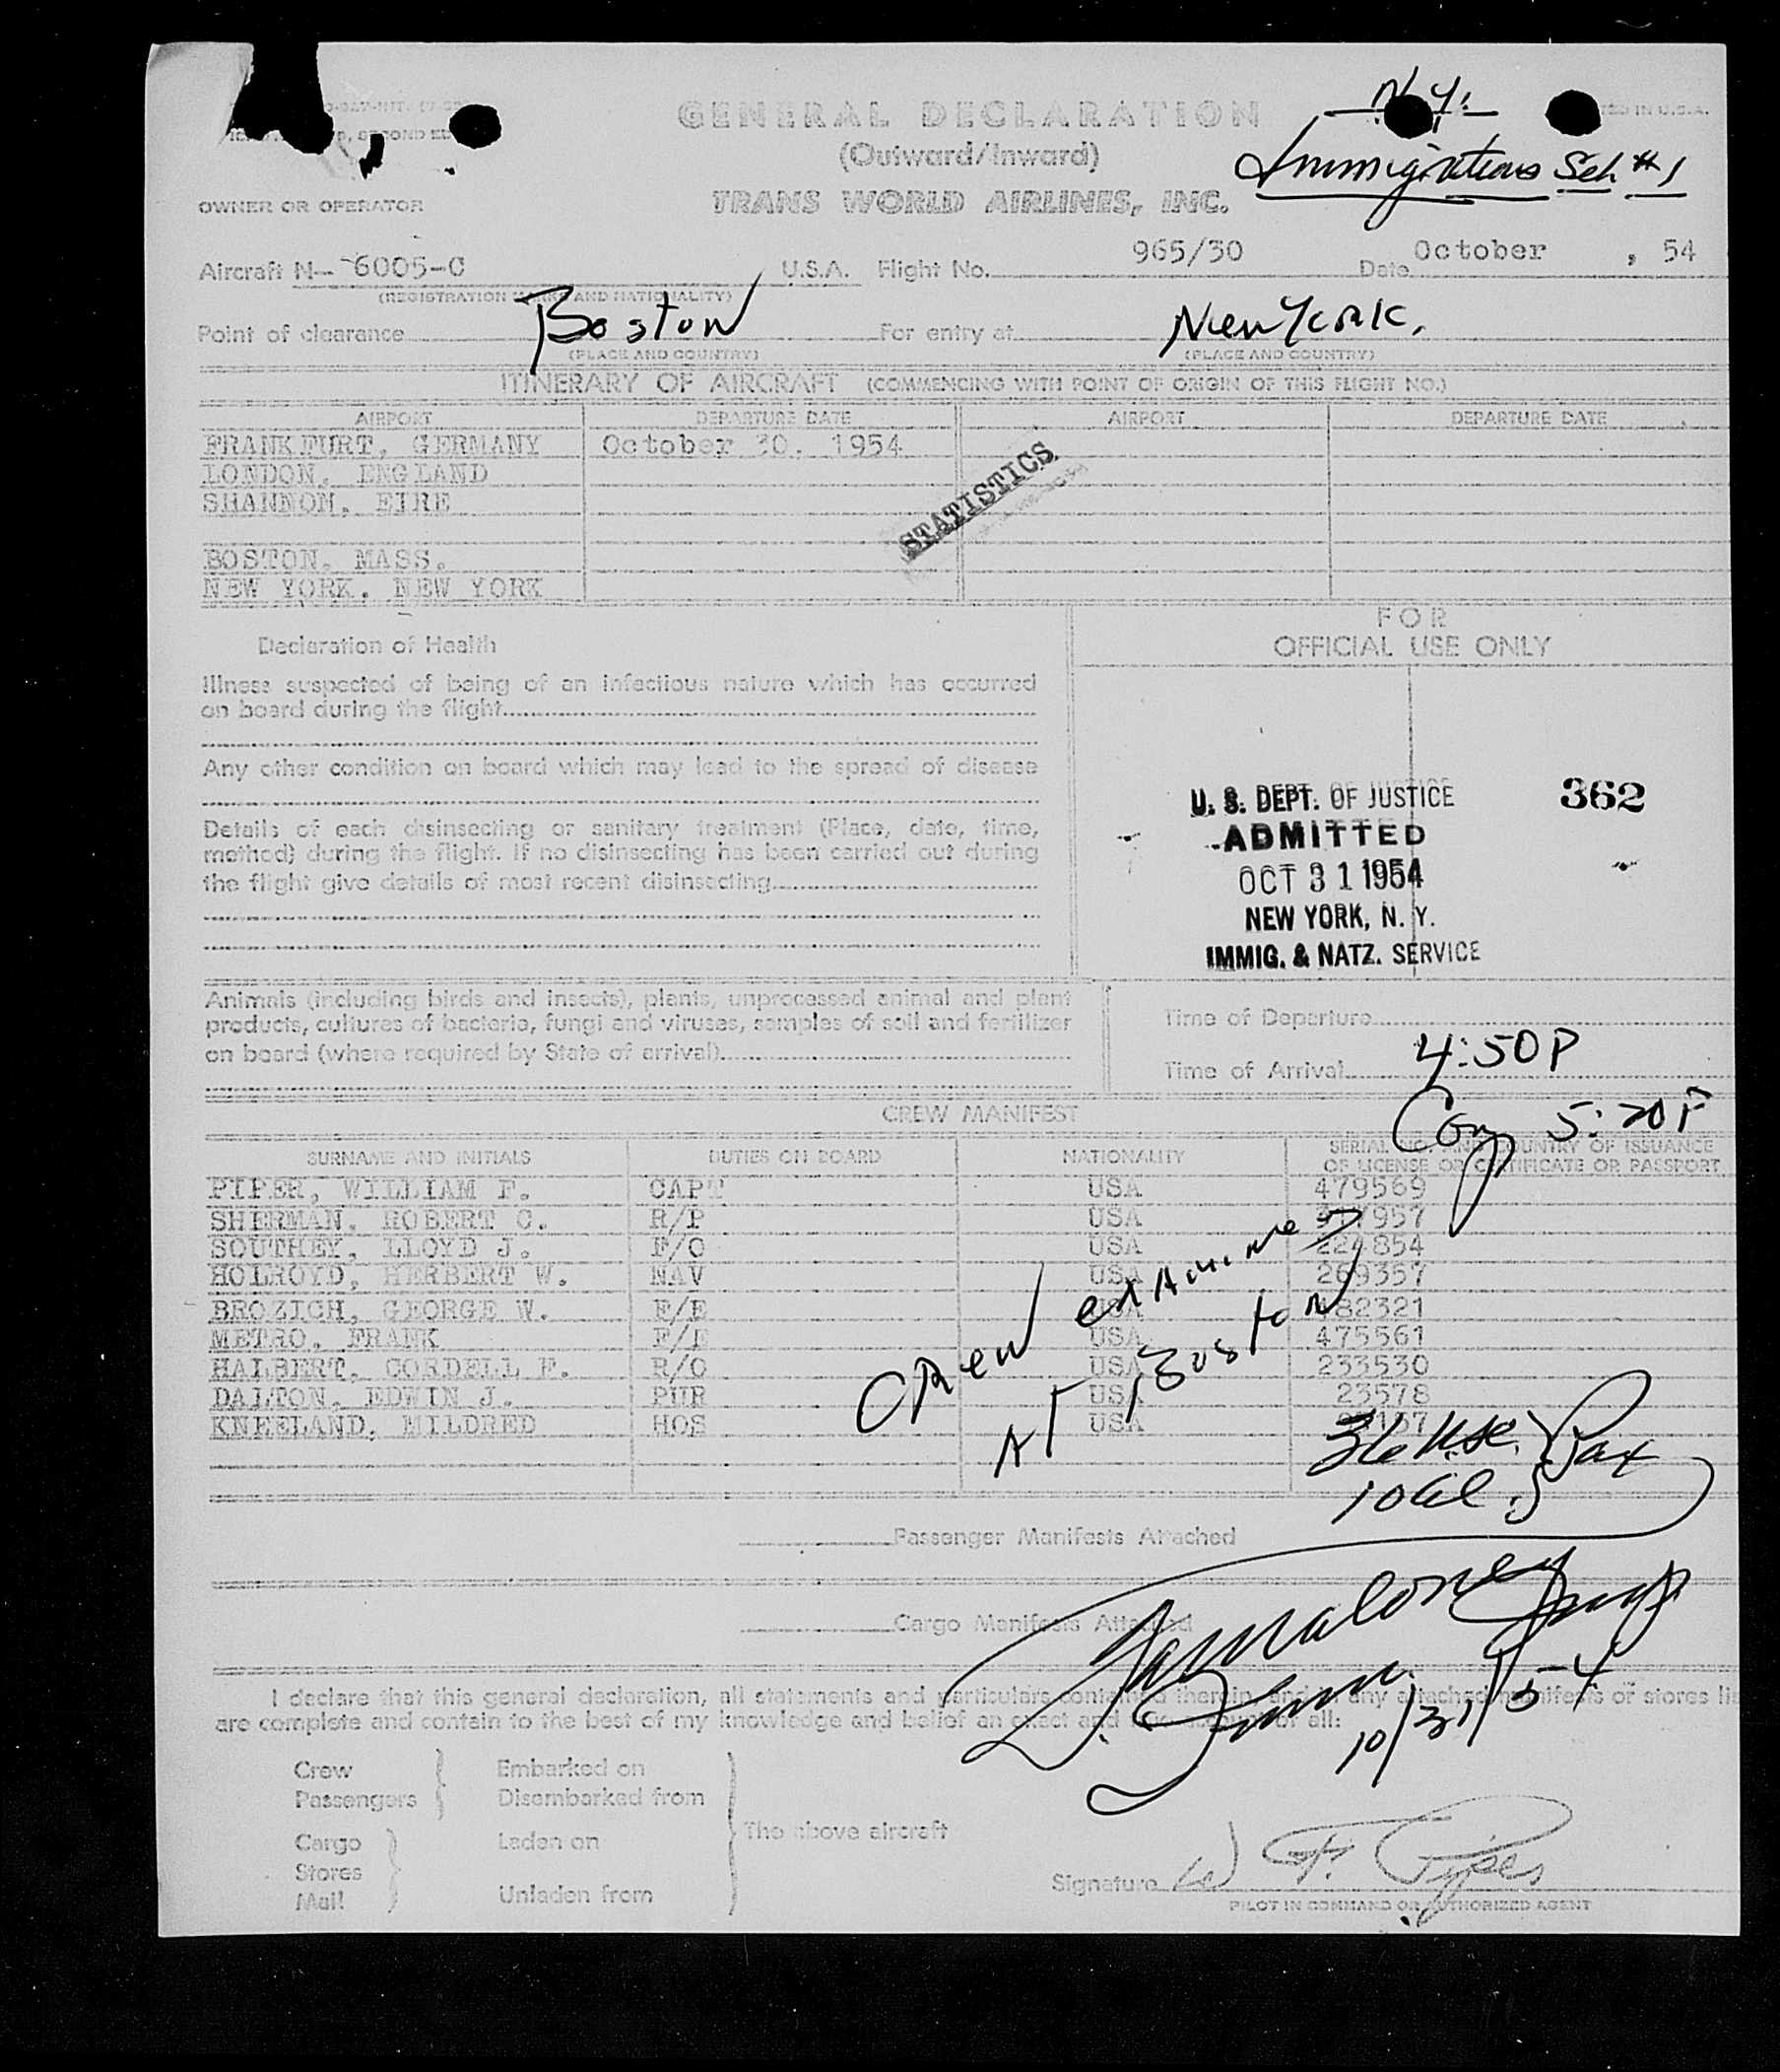 SECOND ED
N.Y.
GENERAL DECLARATION
IN U.S.A.
(Outward/Inward)
Immigrations Sch #1
OWNER OR OPERATOR
TRANS WORLD AIRLINES, INC.
Aircraft N- 6005-C U.S.A. Flight No. 965/30 Date October , 54
(REGISTRATION MARKS AND NATIONALITY)
Point of clearance Boston For entry at New York.
(PLACE AND COUNTRY) (PLACE AND COUNTRY)
ITINERARY OF AIRCRAFT (COMMENCING WITH POINT OF ORIGIN OF THIS FLIGHT NO.)
AIRPORT DEPARTURE DATE AIRPORT DEPARTURE DATE
FRANKFURT, GERMANY October 30, 1954
LONDON, ENGLAND
SHANNON, EIRE
STATISTICS
BOSTON, MASS.
NEW YORK, NEW YORK
FOR
Declaration of Health
OFFICIAL USE ONLY
Illness suspected of being of an infectious nature which has occurred
on board during the flight
Any other condition on board which may lead to the spread of disease
U. S. DEPT. OF JUSTICE 362
Details of each disinsecting or sanitary treatment (Place, date, time,
ADMITTED
method) during the flight. If no disinsecting has been carried out during
the flight give details of most recent disinsecting
OCT 31 1954
NEW YORK, N. Y.
IMMIG. & NATZ. SERVICE
Animals (including birds and insects), plants, unprocessed animal and plant
products, cultures of bacteria, fungi and viruses, samples of soil and fertilizer
on board (where required by State of arrival)
Time of Departure
Time of Arrival 4:50P
5:20P
CREW MANIFEST
SURNAME AND INITIALS DUTIES ON BOARD NATIONALITY SERIAL NO. AND COUNTRY OF ISSUANCE
OF LICENSE OR CERTIFICATE OR PASSPORT
PIPER, WILLIAM F. CAPT USA 479569
SHERMAN, ROBERT C. R/P USA 957
SOUTHEY, LLOYD J. F/O USA 224854
HOLROYD, HERBERT W. NAV USA 269357
BROZICH, GEORGE W. F/E USA 82321
METRO, FRANK F/E USA 475561
HALBERT, CORDELL F. R/O USA 233530
DALTON, EDWIN J. PUR USA 23578
KNEELAND, MILDRED HOS USA
CREW examined
AT Boston
36 USC. } Pax
10 al. }
Passenger Manifests Attached
Cargo Manifests Attached
10/31/54
I declare that this general declaration, all statements and particulars contained therein, and in any attached manifests or stores
are complete and contain to the best of my knowledge and belief an exact and true account of all:
Crew Embarked on
Passengers Disembarked from
Cargo Laden on The above aircraft
Stores
Mail Unladen from
Signature W F. Piper
PILOT IN COMMAND OR AUTHORIZED AGENT